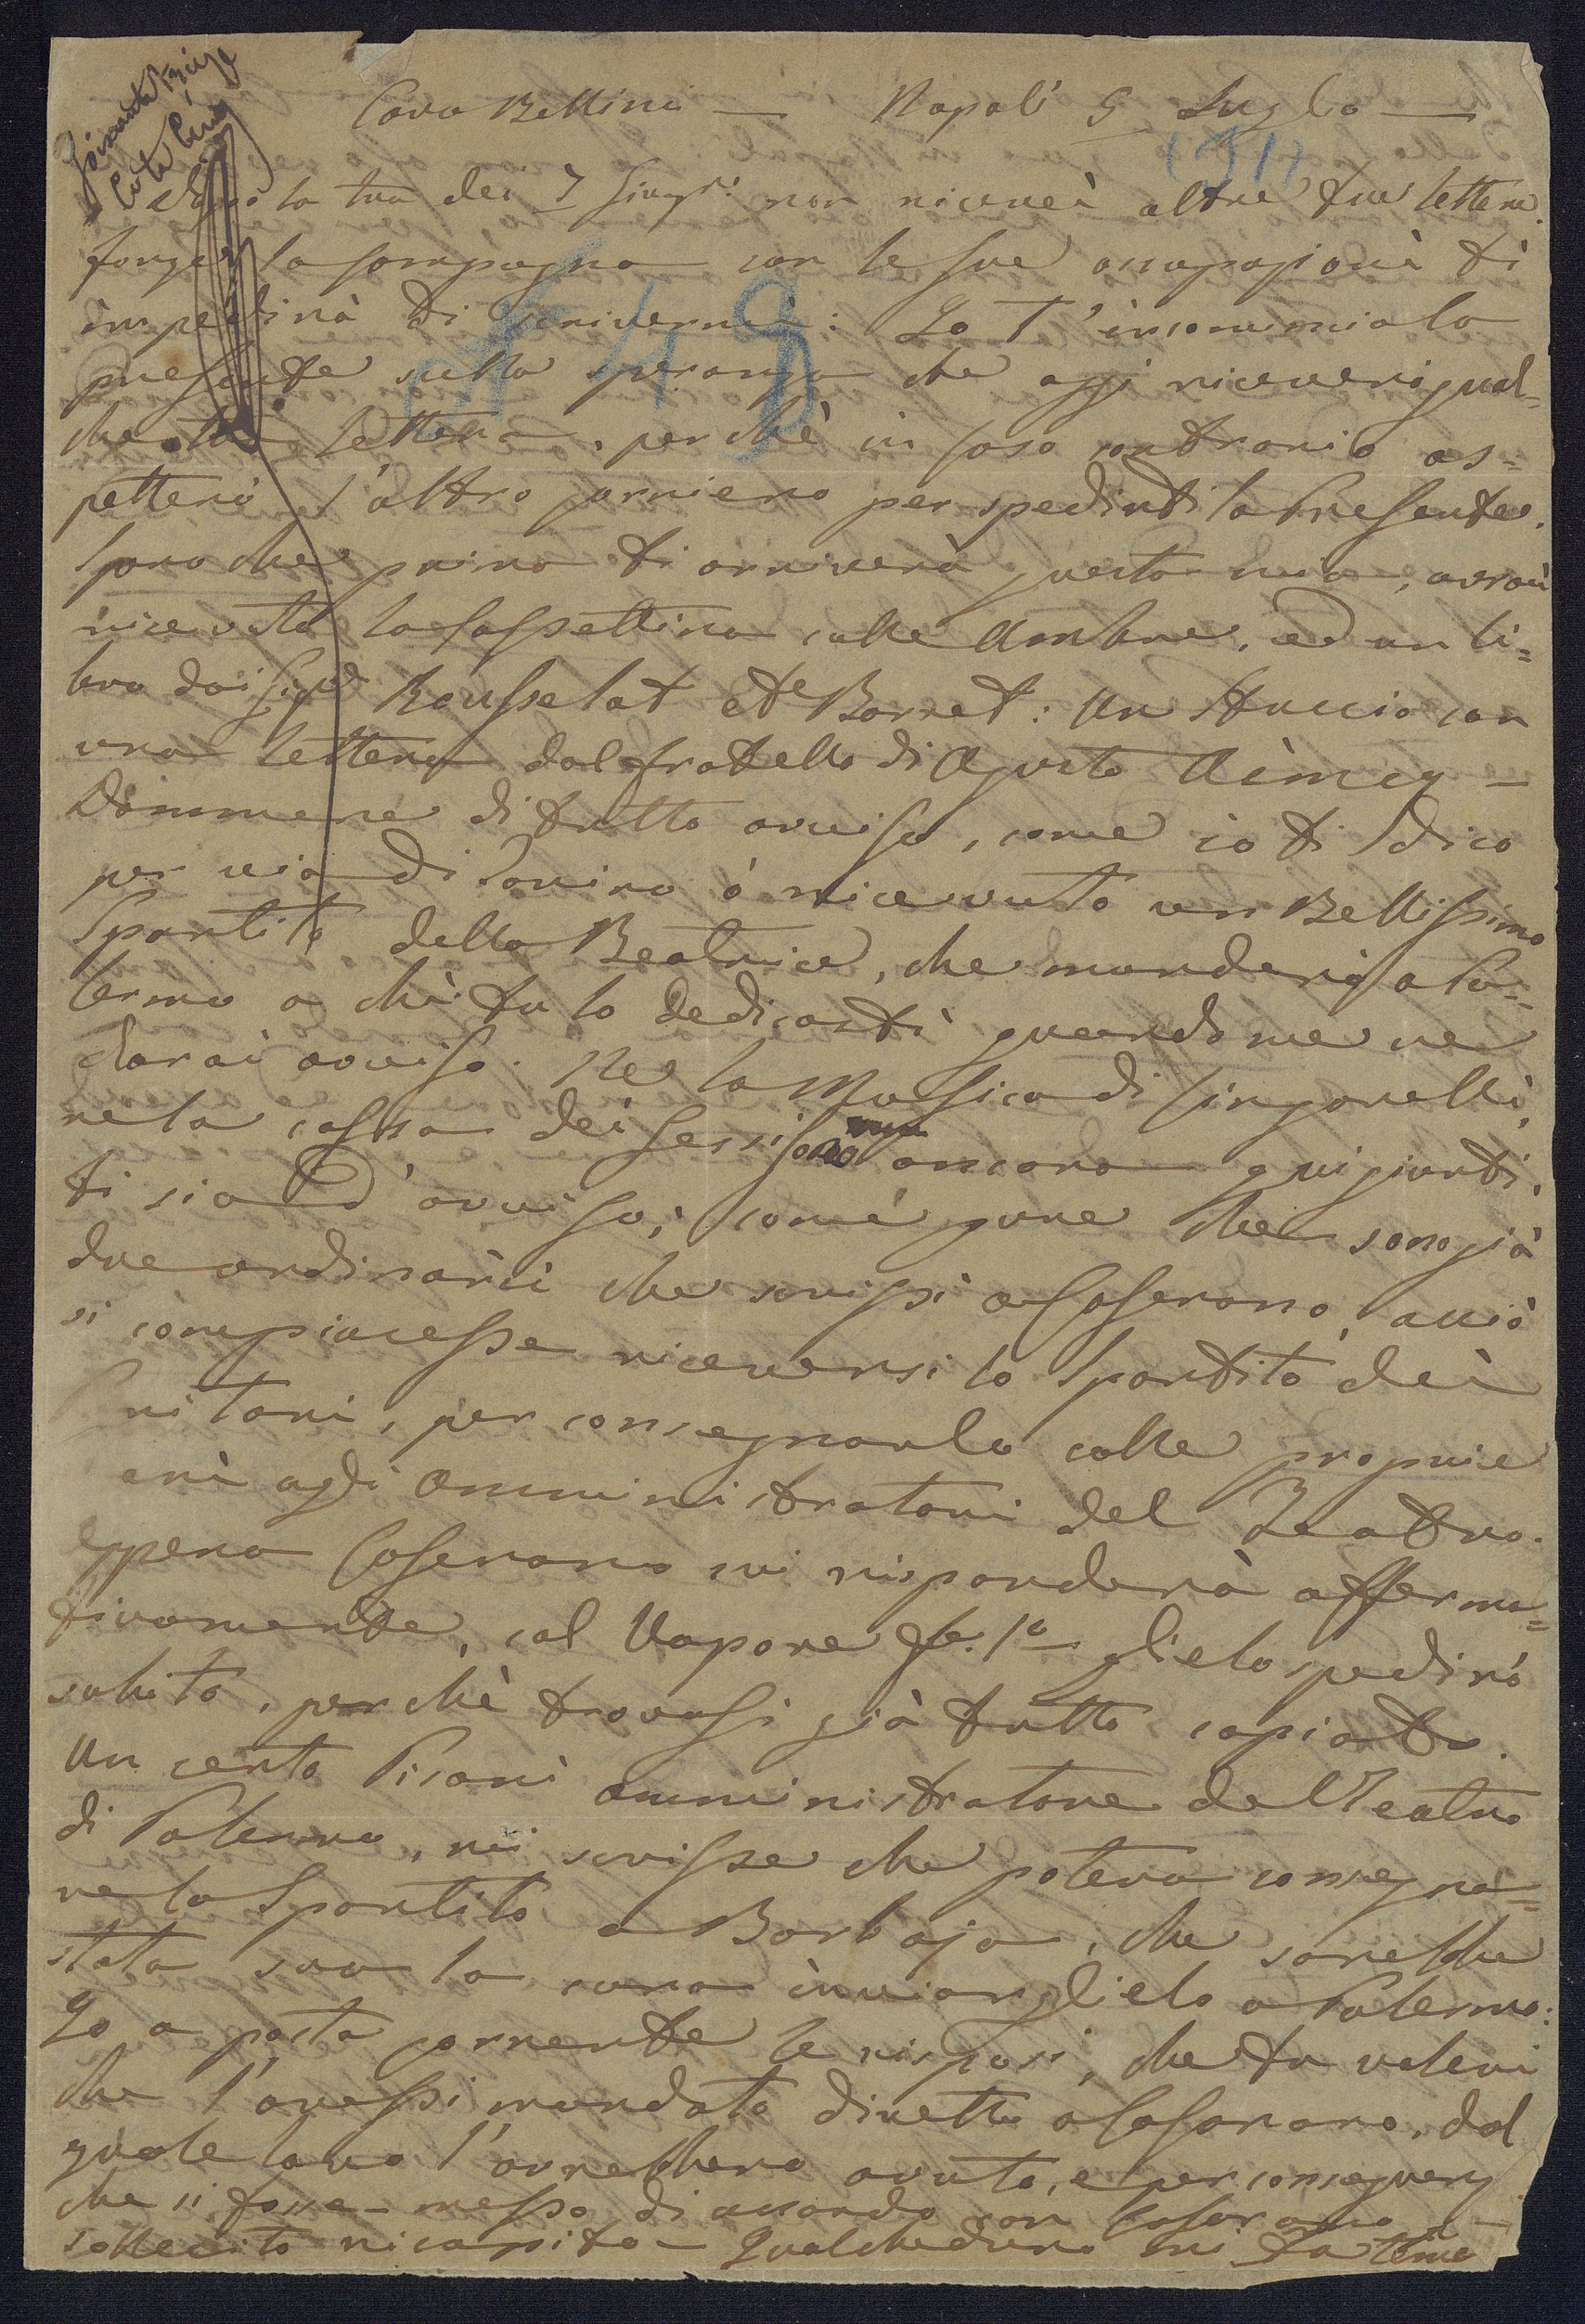 Caro Bellini — Napoli 5 Luglio —
(31)
la tua dei 7 Giug.º non ricevei altre tue lettere.
forze la campagna con le sue occupazioni ti
impedirà di scrivermi: Io t'incomincio la
presente sulla speranza che oggi riceverò qual=
che tua lettera, perchè in caso contrario as=
petterò l'altro corriero per spedirti la presente.
Spero che prima ti arriverà questa mia, avrai
ricevuto la cassettina colle Ambre, ed un li=
bro dai Sig.ri Rousselat et Borret: Un stuccio con
una lettera dal fratello di Agusto Aimey —
Dammene di tutto avviso, come io ti dico
per via di Savino ò ricevuto un Bellissimo
Spartito della Beatrice, che manderò a Pa=
lermo a chi tu lo dedicasti quando me ne
darai avviso. Ne la Musica di Zingarelli,
ne la cassa dei sono ancora qui giunti.
ti sia d'avviso; come pure che sono già
due ordinarii che scrissi a Casarano, acciò
si compiacesse riceversi lo Spartito dei
ritani, per consegnarlo colle proprie
ani agli Amministratori del Teatro.
Appena Casarano mi risponderà afferma=
tivamente, col Vapore Fr. 1º glielo spedirò
subito, perchè trovasi già tutto copiato.
Un certo Pisani amministratore del Teatro
di Palermo, mi scrisse che poteva consegna=
re lo Spartito a Barbaja, che sarebbe
stata sua la cura inviarglielo a Palermo:
Io a posta corrente le risposi, che tu volevi
che l'avessi mandato diretto a Casarano, dal
quale loro l'avrebbero avuto, e per conseguenz
che si fosse messo di accordo con Casarano
sollecito ricapito — Qualcheduno mi fa teme